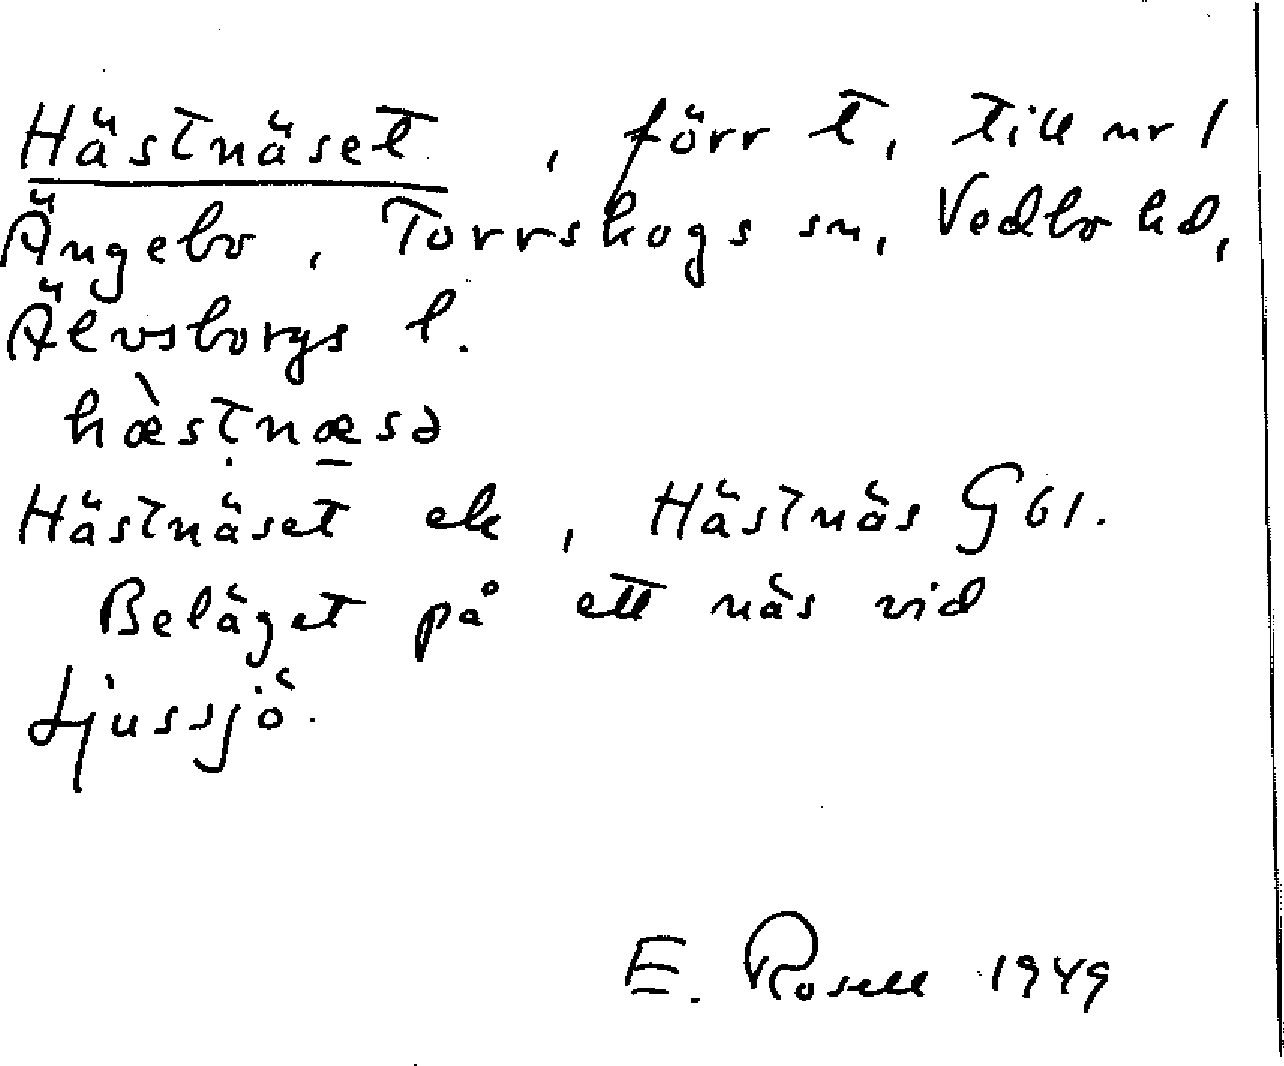 Hästnäset, förr t, till nr 1
Ängebo, Torrskogs sn, Vedbo hd,
Älvsborgs l.
hæ̀stṇæ̱sə
Hästnäset ek, Hästnäs G61.
Beläget på ett näs vid
Ljussjö.
E. Rosell 1949